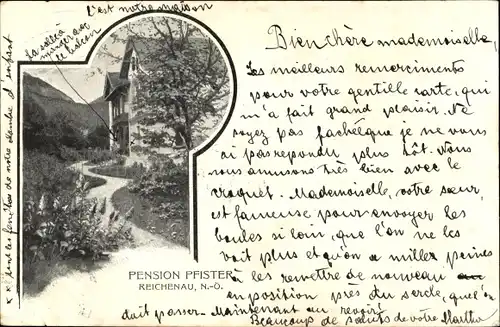 C'est notre maison
La salle à
manger avec
le balcon
x sind les fenêtres de notre chambre d'enfant
PENSION PFISTER
REICHENAU, N.-Ö.
Bien chère mademoiselle,
Les meilleurs remerciments
pour votre gentille carte, qui
m'a fait grand plaisir. Ne
soyez pas fachée que je ne vous
ai pas repondu plus tôt. Nous
nous amusons très bien avec le
croquet. Mademoiselle, votre sœur,
est fameuse pour envoyer les
boules si loin, que l'on ne les
voit plus et qu'on a mille peines
à les remettre de nouveau en
exposition près du cercle, que l'on
doit passer. Maintenant au revoir
Beaucoup de saluts de votre Martha